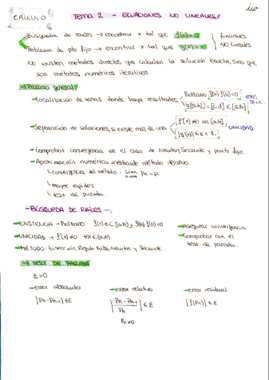 CÁLCULO
TEMA 2 - ECUACIONES NO LINEALES
Búsqueda de raíces → encontrar x tal que f(x)=0
Problema de pto fijo → encontrar x tal que g(x)=x
funciones NO lineales
No existen métodos directos que calculen la solución exacta, sino que
son métodos numéricos iterativos.
→ Proceso general:
→ Localización de zonas donde haya resultados
Bolzano f(a)·f(b)<0
g([a,b]) = [c,d] ⊂ [a,b]
→ Separación de soluciones, si existe más de una
f'(x) ≠0 en [a,b]
UNICIDAD
→ Comprobar convergencia en el caso de Newton, Secante y punto fijo.
→ Aproximación numérica mediante método iterativo
convergencia del método: lim Pn = p
n→∞
mayor rapidez
test de parada.
- BÚSQUEDA DE RAÍCES -
→ EXISTENCIA → Bolzano f(x) ∈ C[a,b] y f(a)·f(b)<0
→ Asegurar convergencia
→ UNICIDAD → f'(x) ≠0 ∀x ∈ [a,b]
→ Comprobar con el test de parada.
→ MÉTODO: bisección, Regula Falsi, Newton y Secante.
→ TEST DE PARADA
ε>0
→ error absoluto
→ error relativo
→ error residual
|Pn - Pn-1| ≤ ε
|Pn - Pn-1 / Pn| ≤ ε
|f(Pn)| ≤ ε
Pn≠0